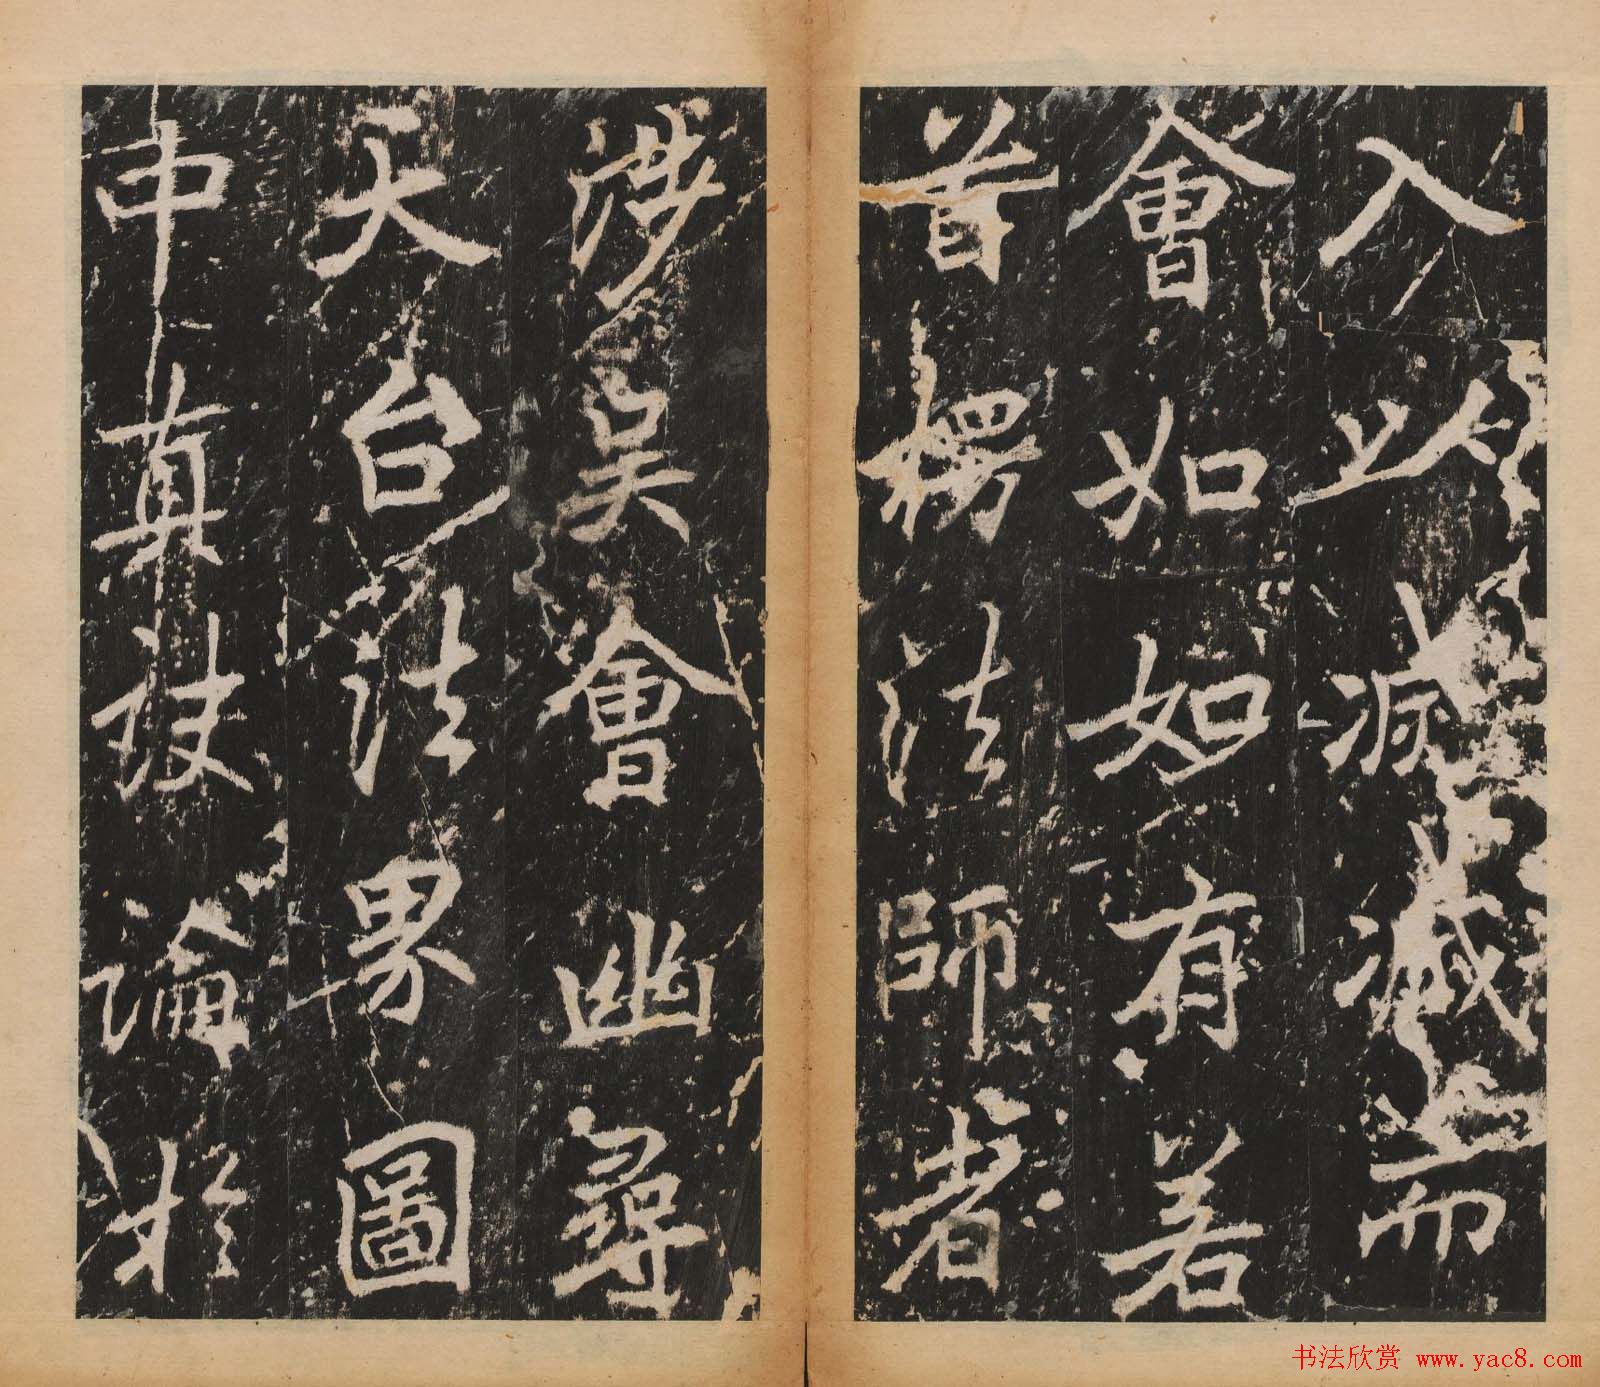 入以滅而
會如如有若
首楞法師者
涉吳會幽尋
天台法界圖
中真訣論於
书法欣赏 www.yac8.com